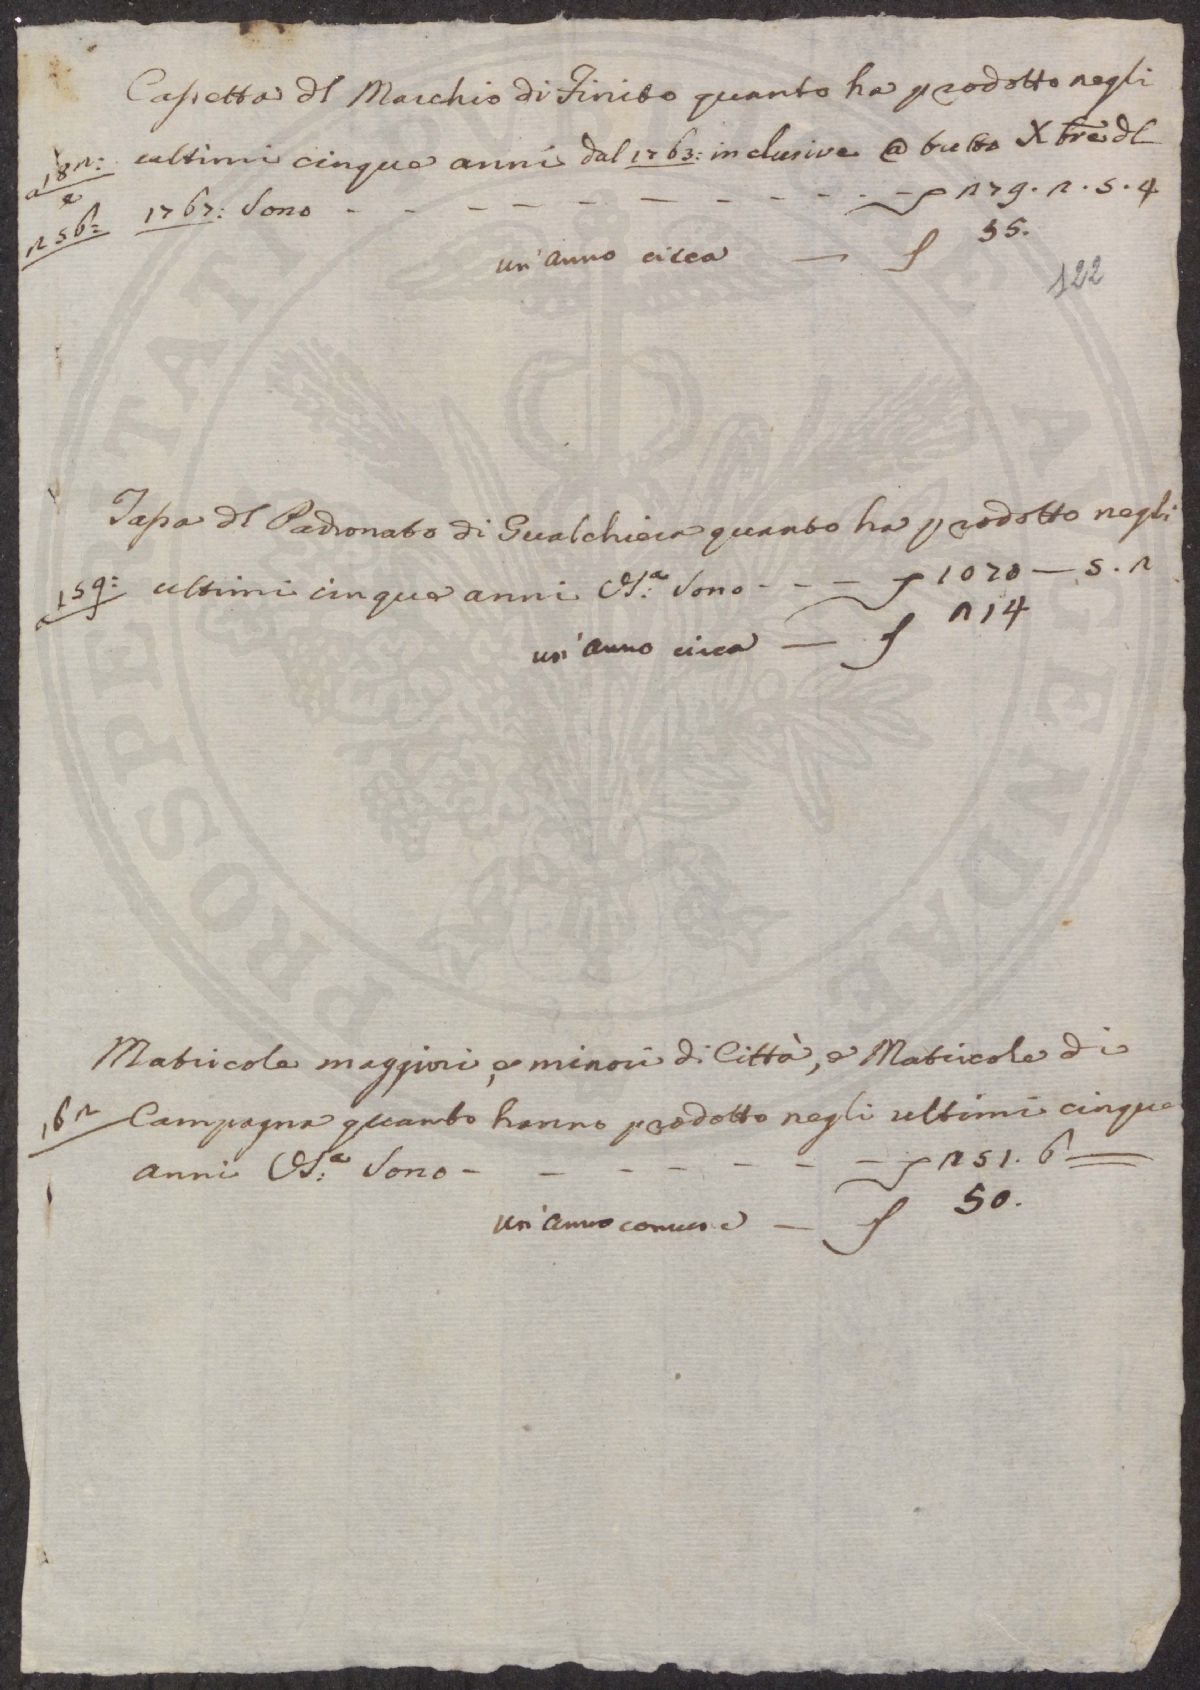 Cassetta dl Marchio di Finito quanto ha prodotto negli
182:
e
256:
ultimi cinque anni dal 1763: inclusive @ tutto Xbre dl
1767: Sono - - - - - - - - - - £ 279. 2. 5. 4
un' anno circa — £ 55.
122
Tassa dl Padronato di Gualchiera quanto ha prodotto negli
159:
ultimi cinque anni Sa: Sono - - - £ 1070 — 5. 2
un' anno circa — £ 214
Matricole maggiori, e minori di Città, e Matricole di
162
Campagna quanto hanno prodotto negli ultimi cinque
anni Sa: Sono - - - - - - - £ 251. 6
un' anno comune — £ 50.
PROSPERITATI PUBLICAE ATTENDAE